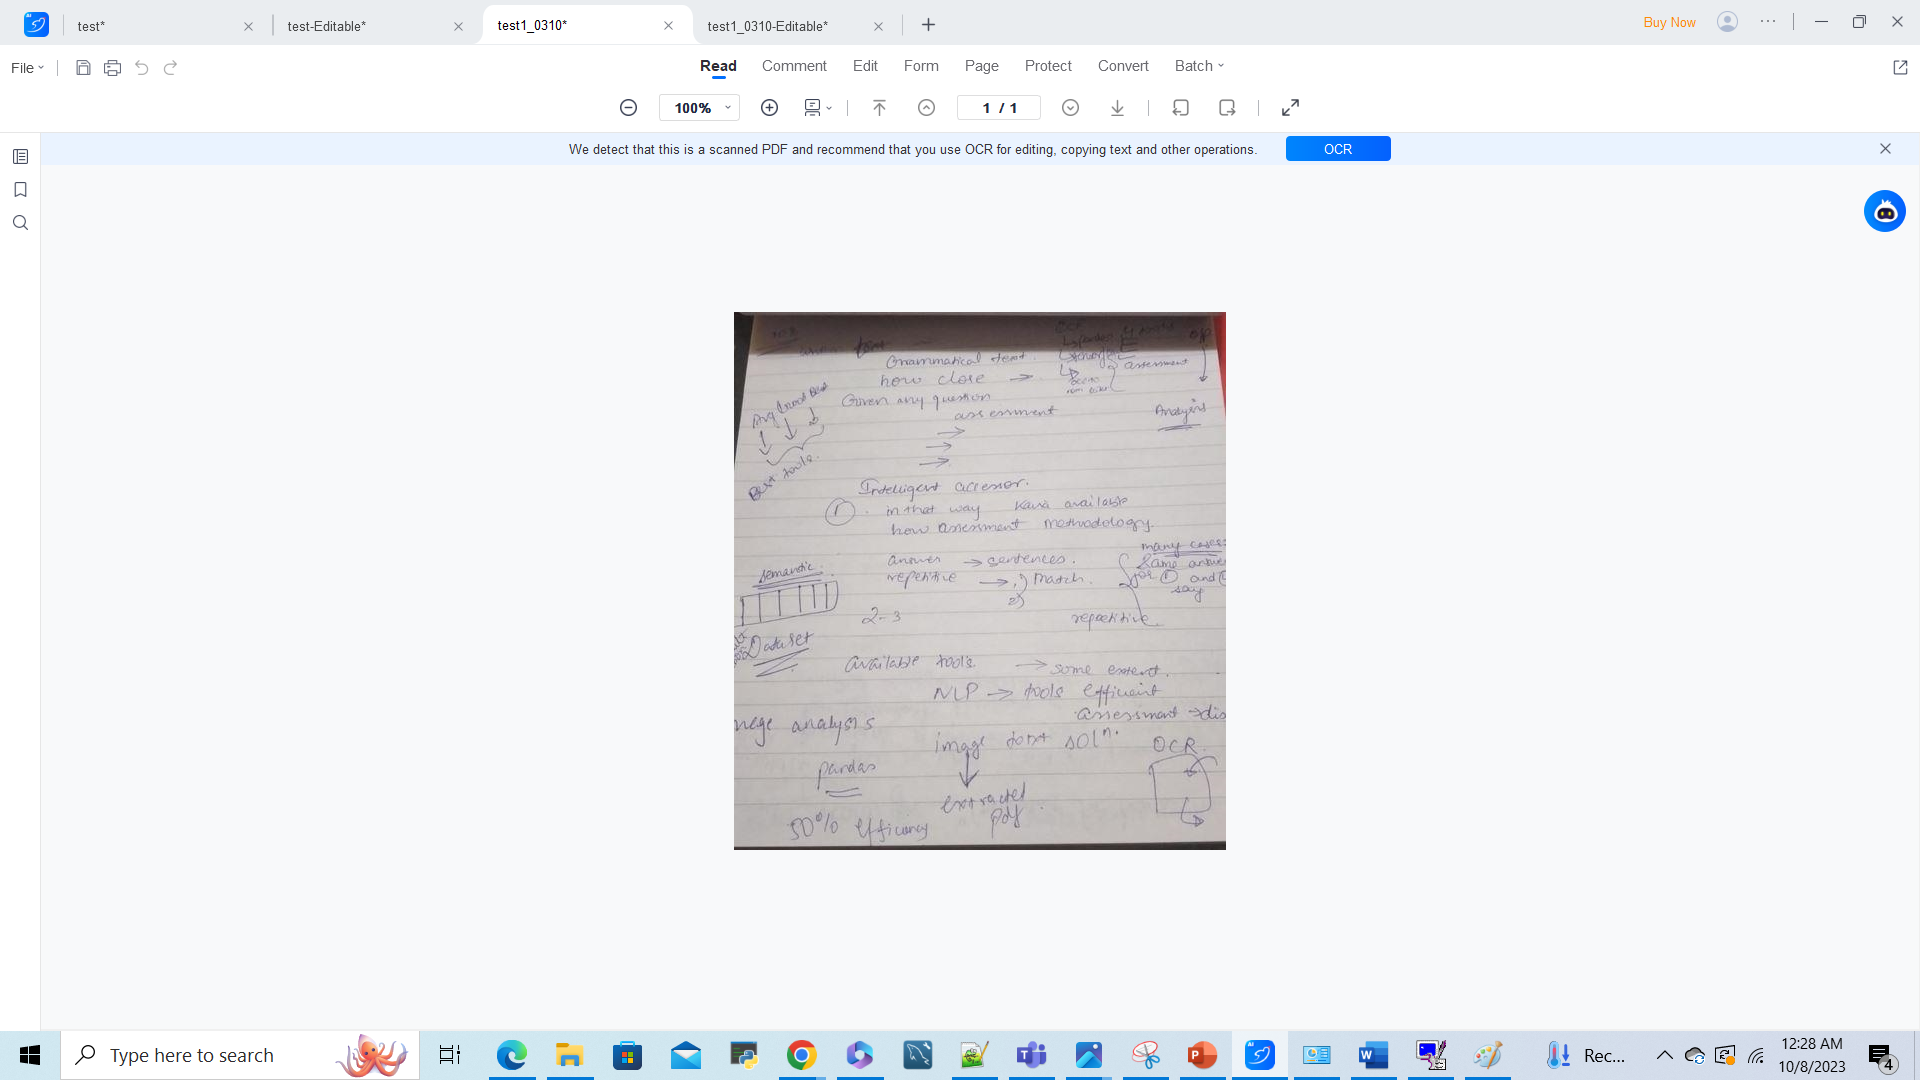 test*
test-Editable*
test1_0310*
test1_0310-Editable*
Buy Now
File
Read
Comment
Edit
Form
Page
Protect
Convert
Batch
100%
1 / 1
We detect that this is a scanned PDF and recommend that you use OCR for editing, copying text and other operations.
OCR
Grammatical text.
how close →
assessment
Given any question
assessment
Analysis
Avg Good Best
Best tools.
Intelligent accessor.
1. in that way available
how assessment methodology.
answer → sentences.
repetitive → 1) Match.
2)
many cases
same answer
and
say
repetitive
semantic
2-3
Dataset
available tools. → some extent.
NLP → tools efficient
assessment → dis
mage analysis
image text soln.
OCR
pandas
extracted
pdf
50% efficiency
Type here to search
Rec...
12:28 AM
10/8/2023
4